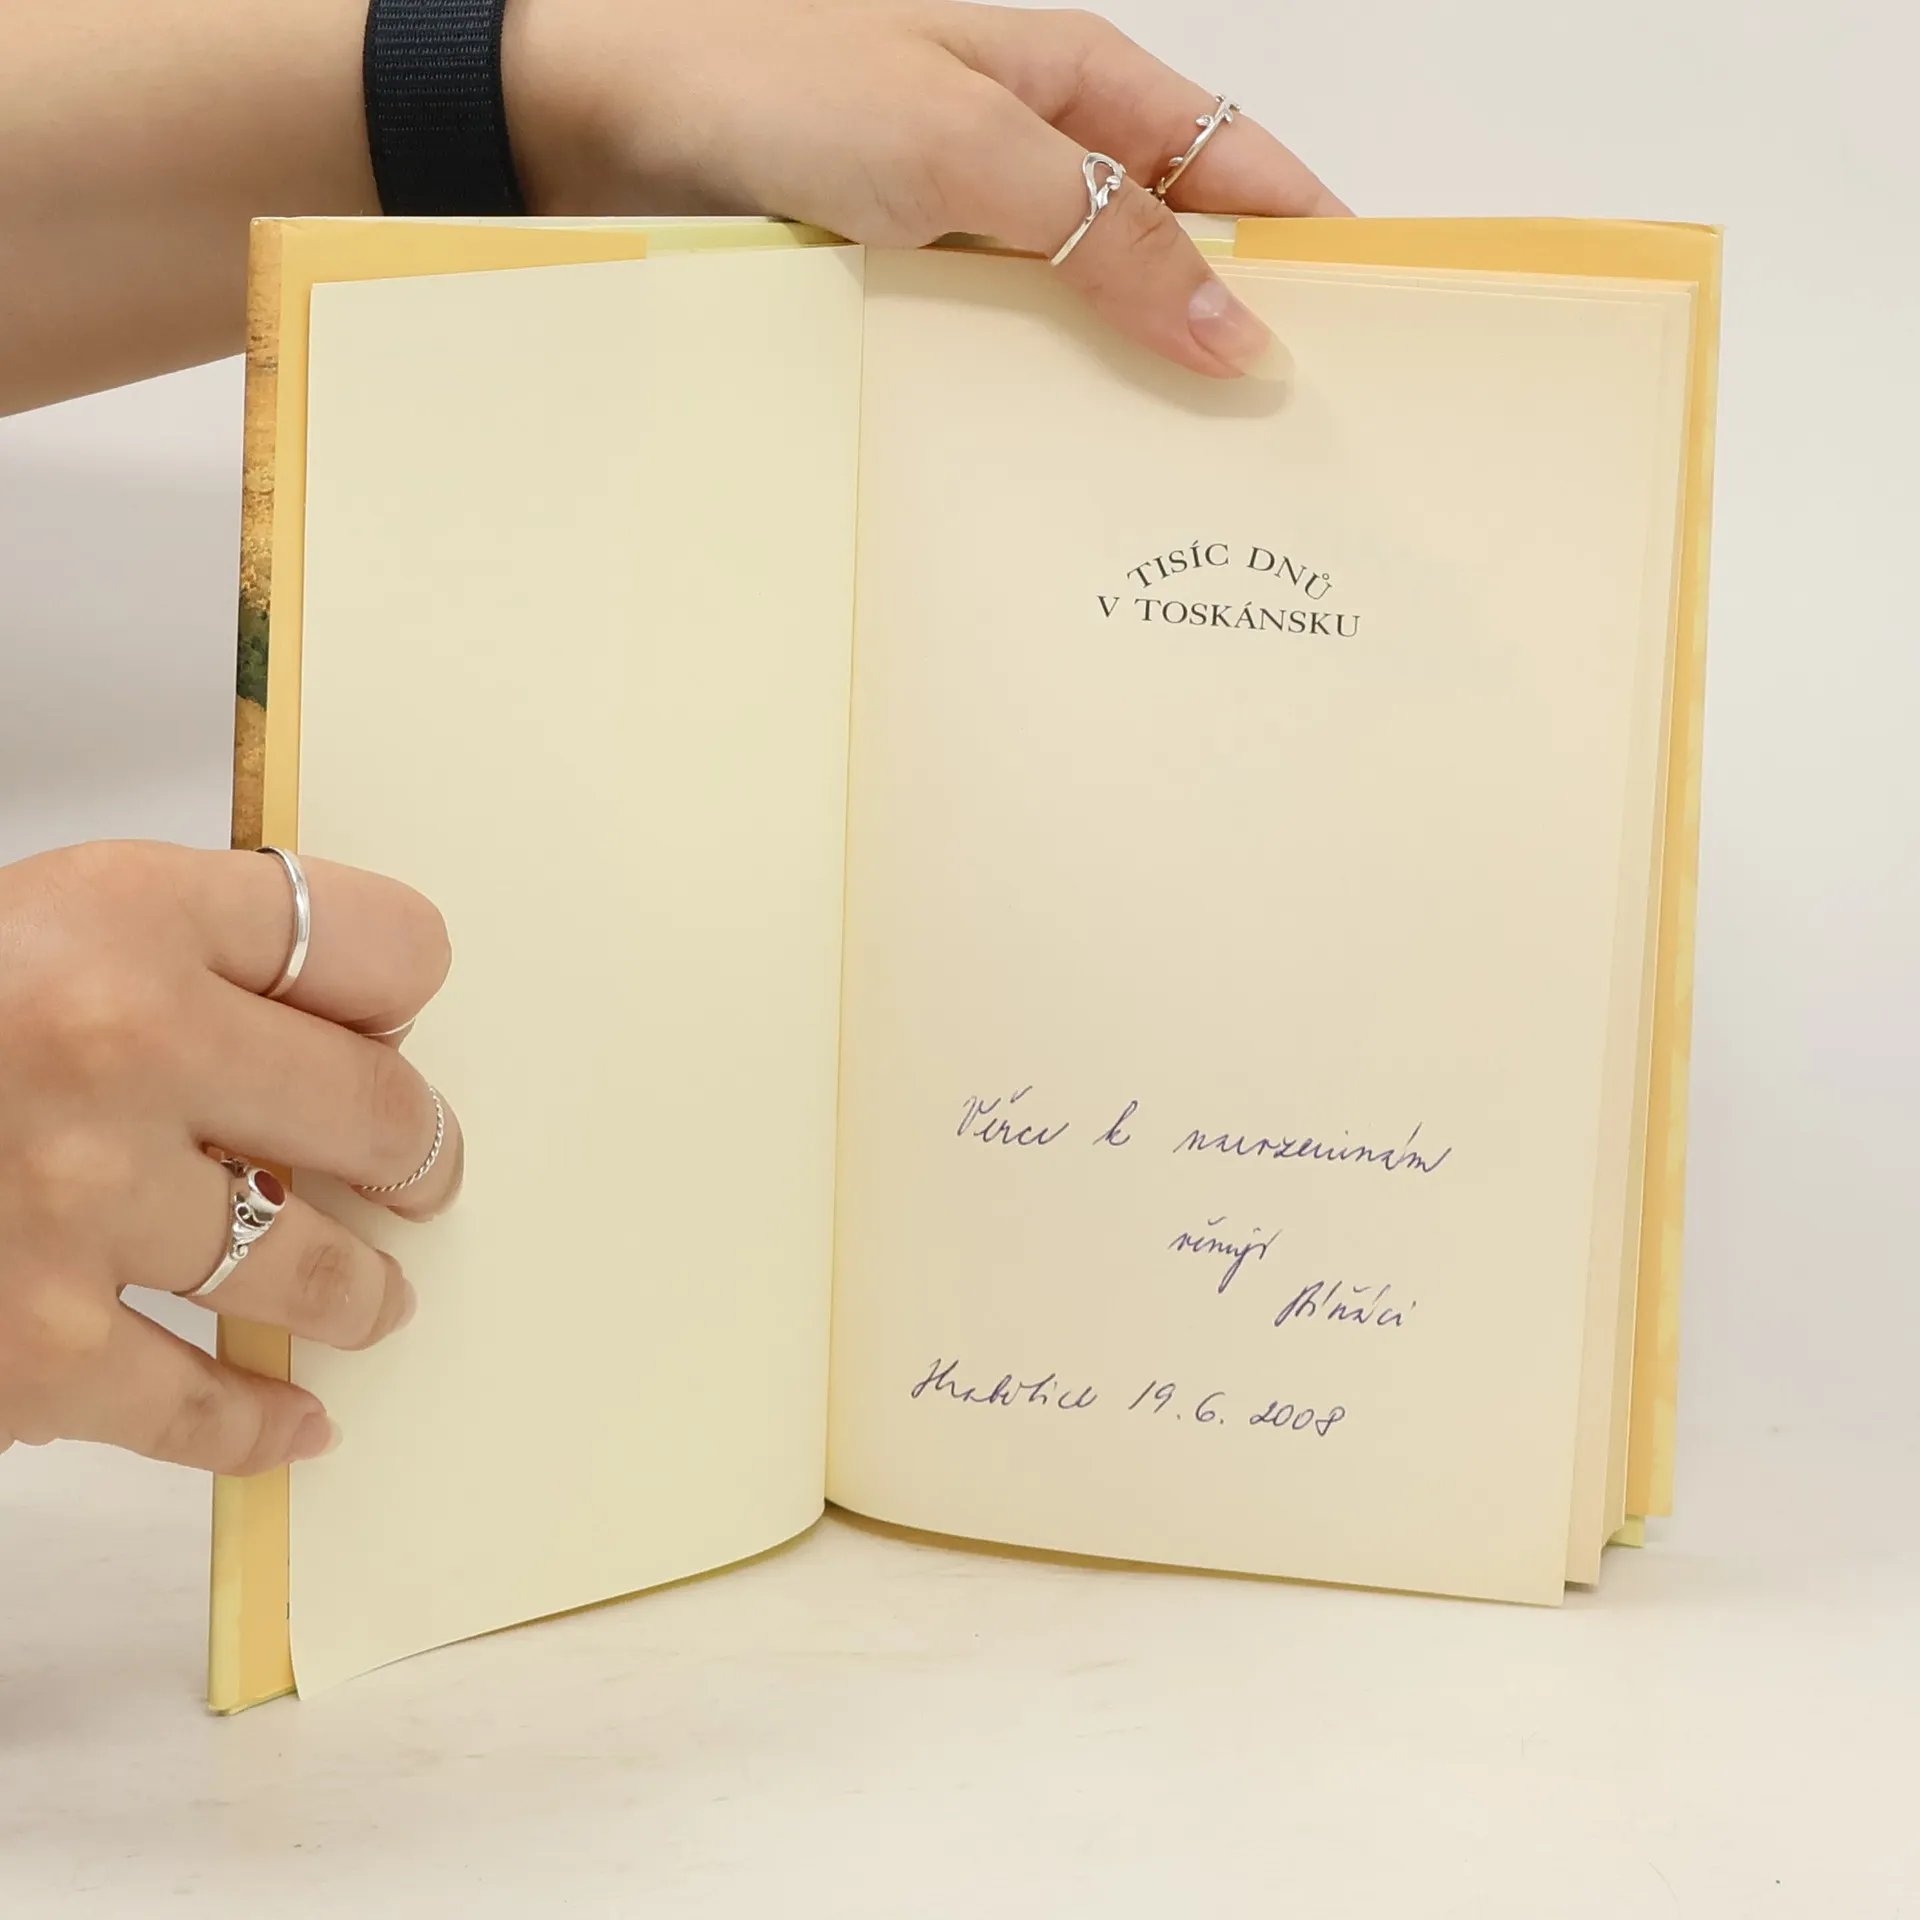 TISÍC DNŮ
V TOSKÁNSKU
Věrce k narozeninám
věnují
Hrabětice 19.6.2008